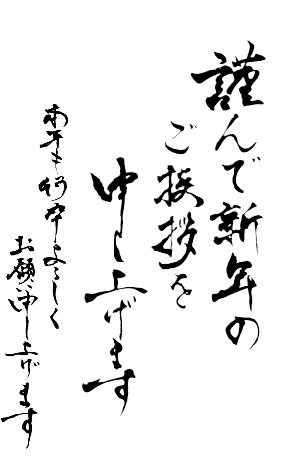 謹んで新年の
ご挨拶を
申し上げます
本年も何卒よろしく
お願い申し上げます